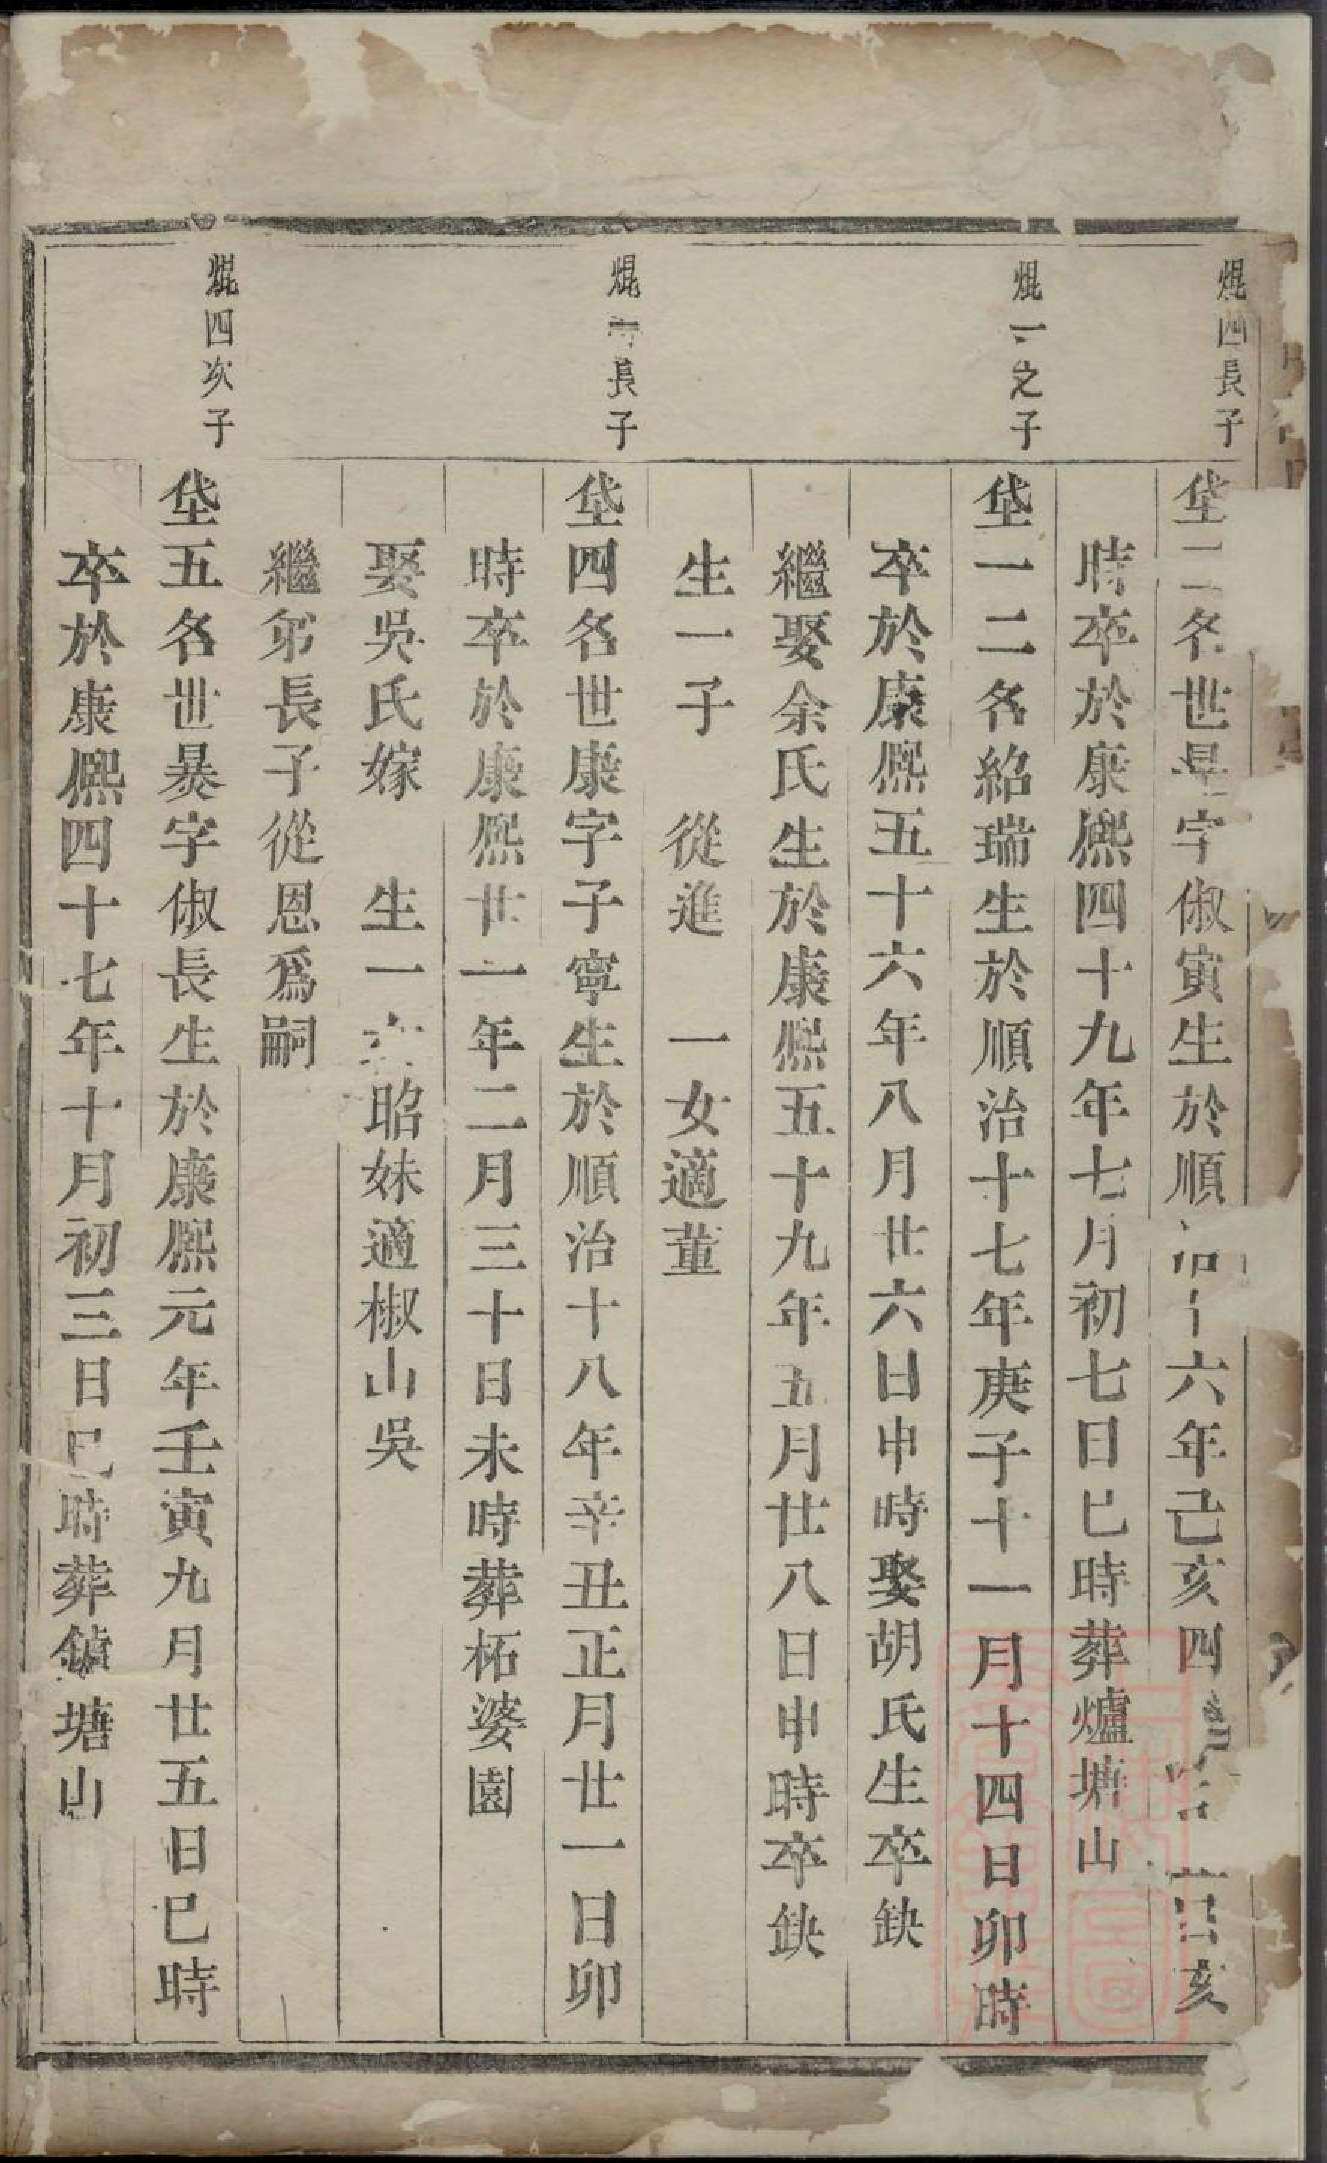 焜四長子
垡二名世字俶寅生於順治十六年己亥四日亥
時卒於康熙四十九年七月初七日巳時葬爐塘山
焜一之子
垡一二名紹瑞生於順治十七年庚子十一月十四日卯時
卒於康熙五十六年八月廿六日申時娶胡氏生卒缺
繼娶余氏生於康熙五十九年五月廿八日申時卒缺
生一子　從進　一女適董
焜長子
垡四名世康字子寧生於順治十八年辛丑正月廿一日卯
時卒於康熙廿一年二月三十日未時葬柘婆園
娶吳氏嫁　生一昭妹適椒山吳
繼弟長子從恩爲嗣
焜四次子
垡五名世暴字俶長生於康熙元年壬寅九月廿五日巳時
卒於康熙四十七年十月初三日巳時葬鎮塘山